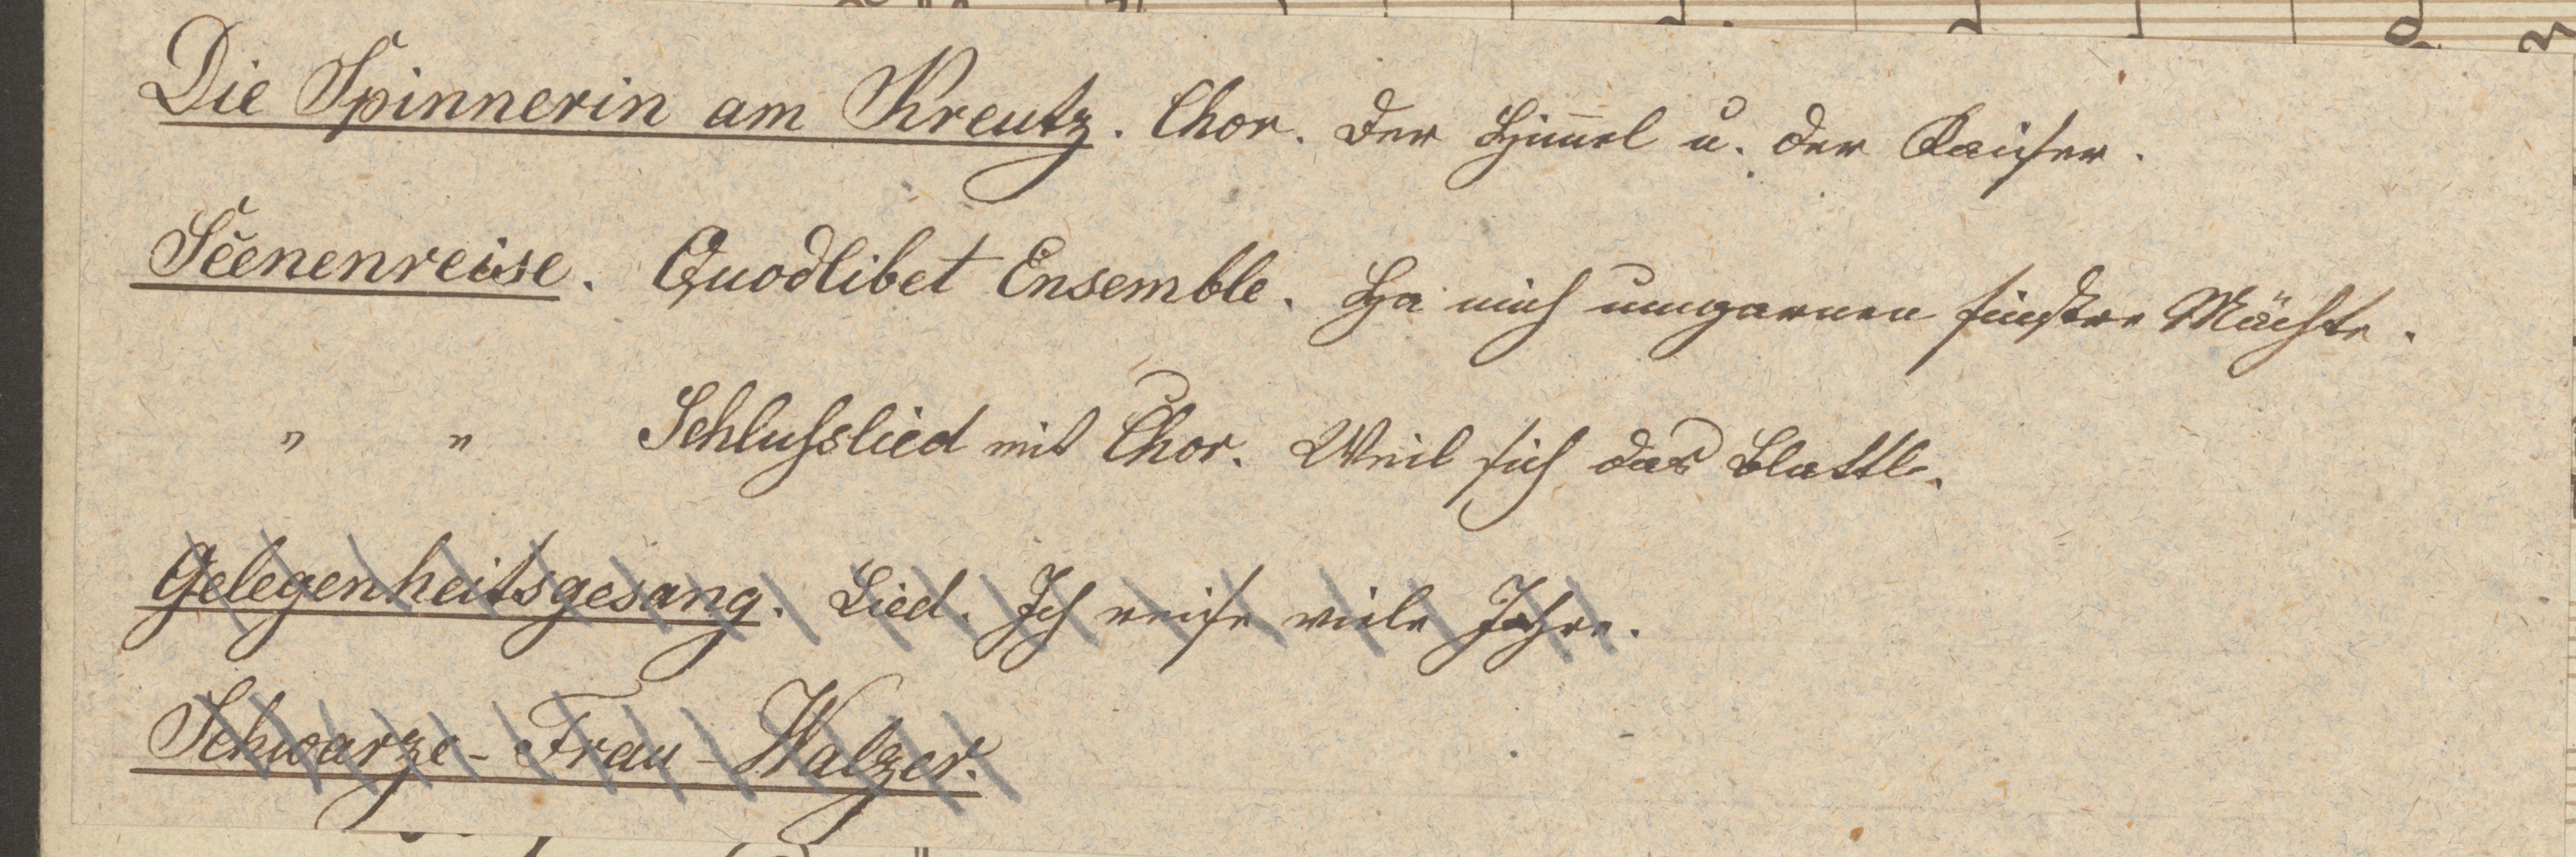 Die Spinnerin am Kreutz. Chor. Der Him̅el u. der Kaiser.
Scenenreise. Quodlibet Ensemble. Ha mich umgarnen finstre Mächte.
" " Schlusslied mit Chor. Weil sich das Blattl.
Gelegenheitsgesang. Lied. Ich reise viele Jahre.
Schwarze-Frau-Walzer.